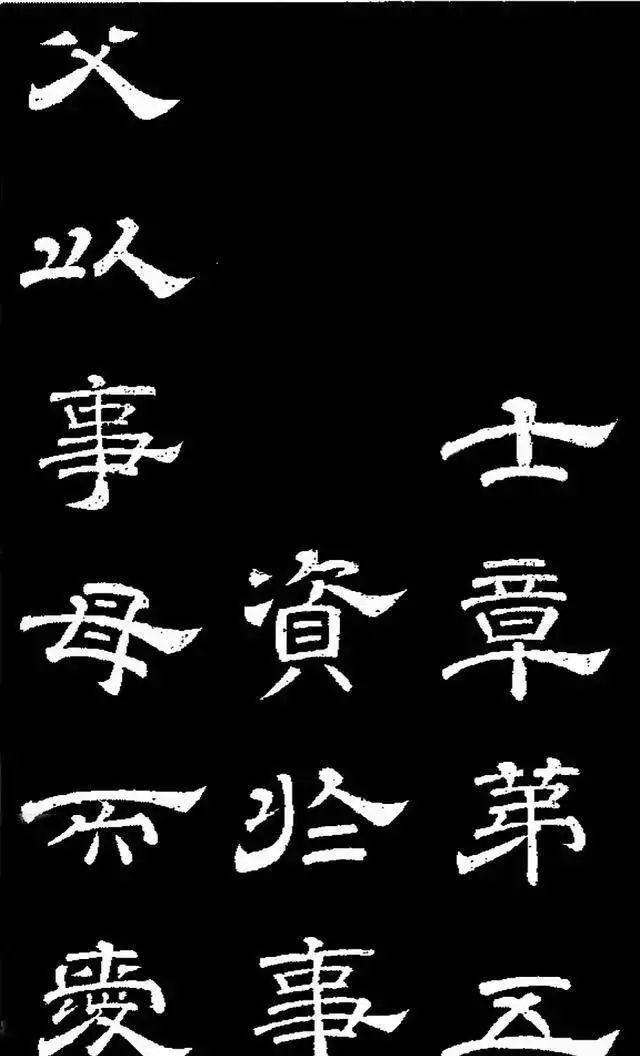 士章第五
資於事
父以事母而愛